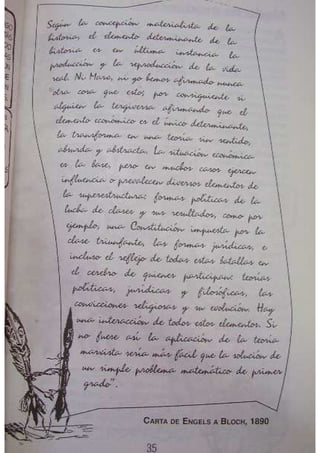 Según la concepción materialista de la
historia, el elemento determinante de la
historia es en última instancia la
producción y la reproducción de la vida
real. Ni Marx, ni yo hemos afirmado nunca
otra cosa que esto; por consiguiente si
alguien la tergiversa afirmando que el
elemento económico es el único determinante,
la transforma en una teoría sin sentido,
absurda y abstracta. La situación económica
es la base, pero en muchos casos ejercen
influencia o prevalecen diversos elementos de
la superestructura: formas políticas de la
lucha de clases y sus resultados, como por
ejemplo, una Constitución impuesta por la
clase triunfante, las formas jurídicas, e
incluso el reflejo de todas estas batallas en
el cerebro de quienes participan: teorías
políticas, jurídicas y filosóficas, las
convicciones religiosas y su evolución. Hay
una interacción de todos estos elementos. Si
no fuese así la aplicación de la teoría
marxista sería más fácil que la solución de
un simple problema matemático de primer
grado".
CARTA DE ENGELS A BLOCH, 1890
35